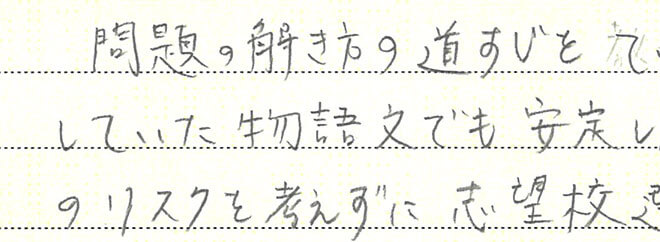 問題の解き方の道すじを てい
していた物語文でも安定し
のリスクを考えずに志望校選